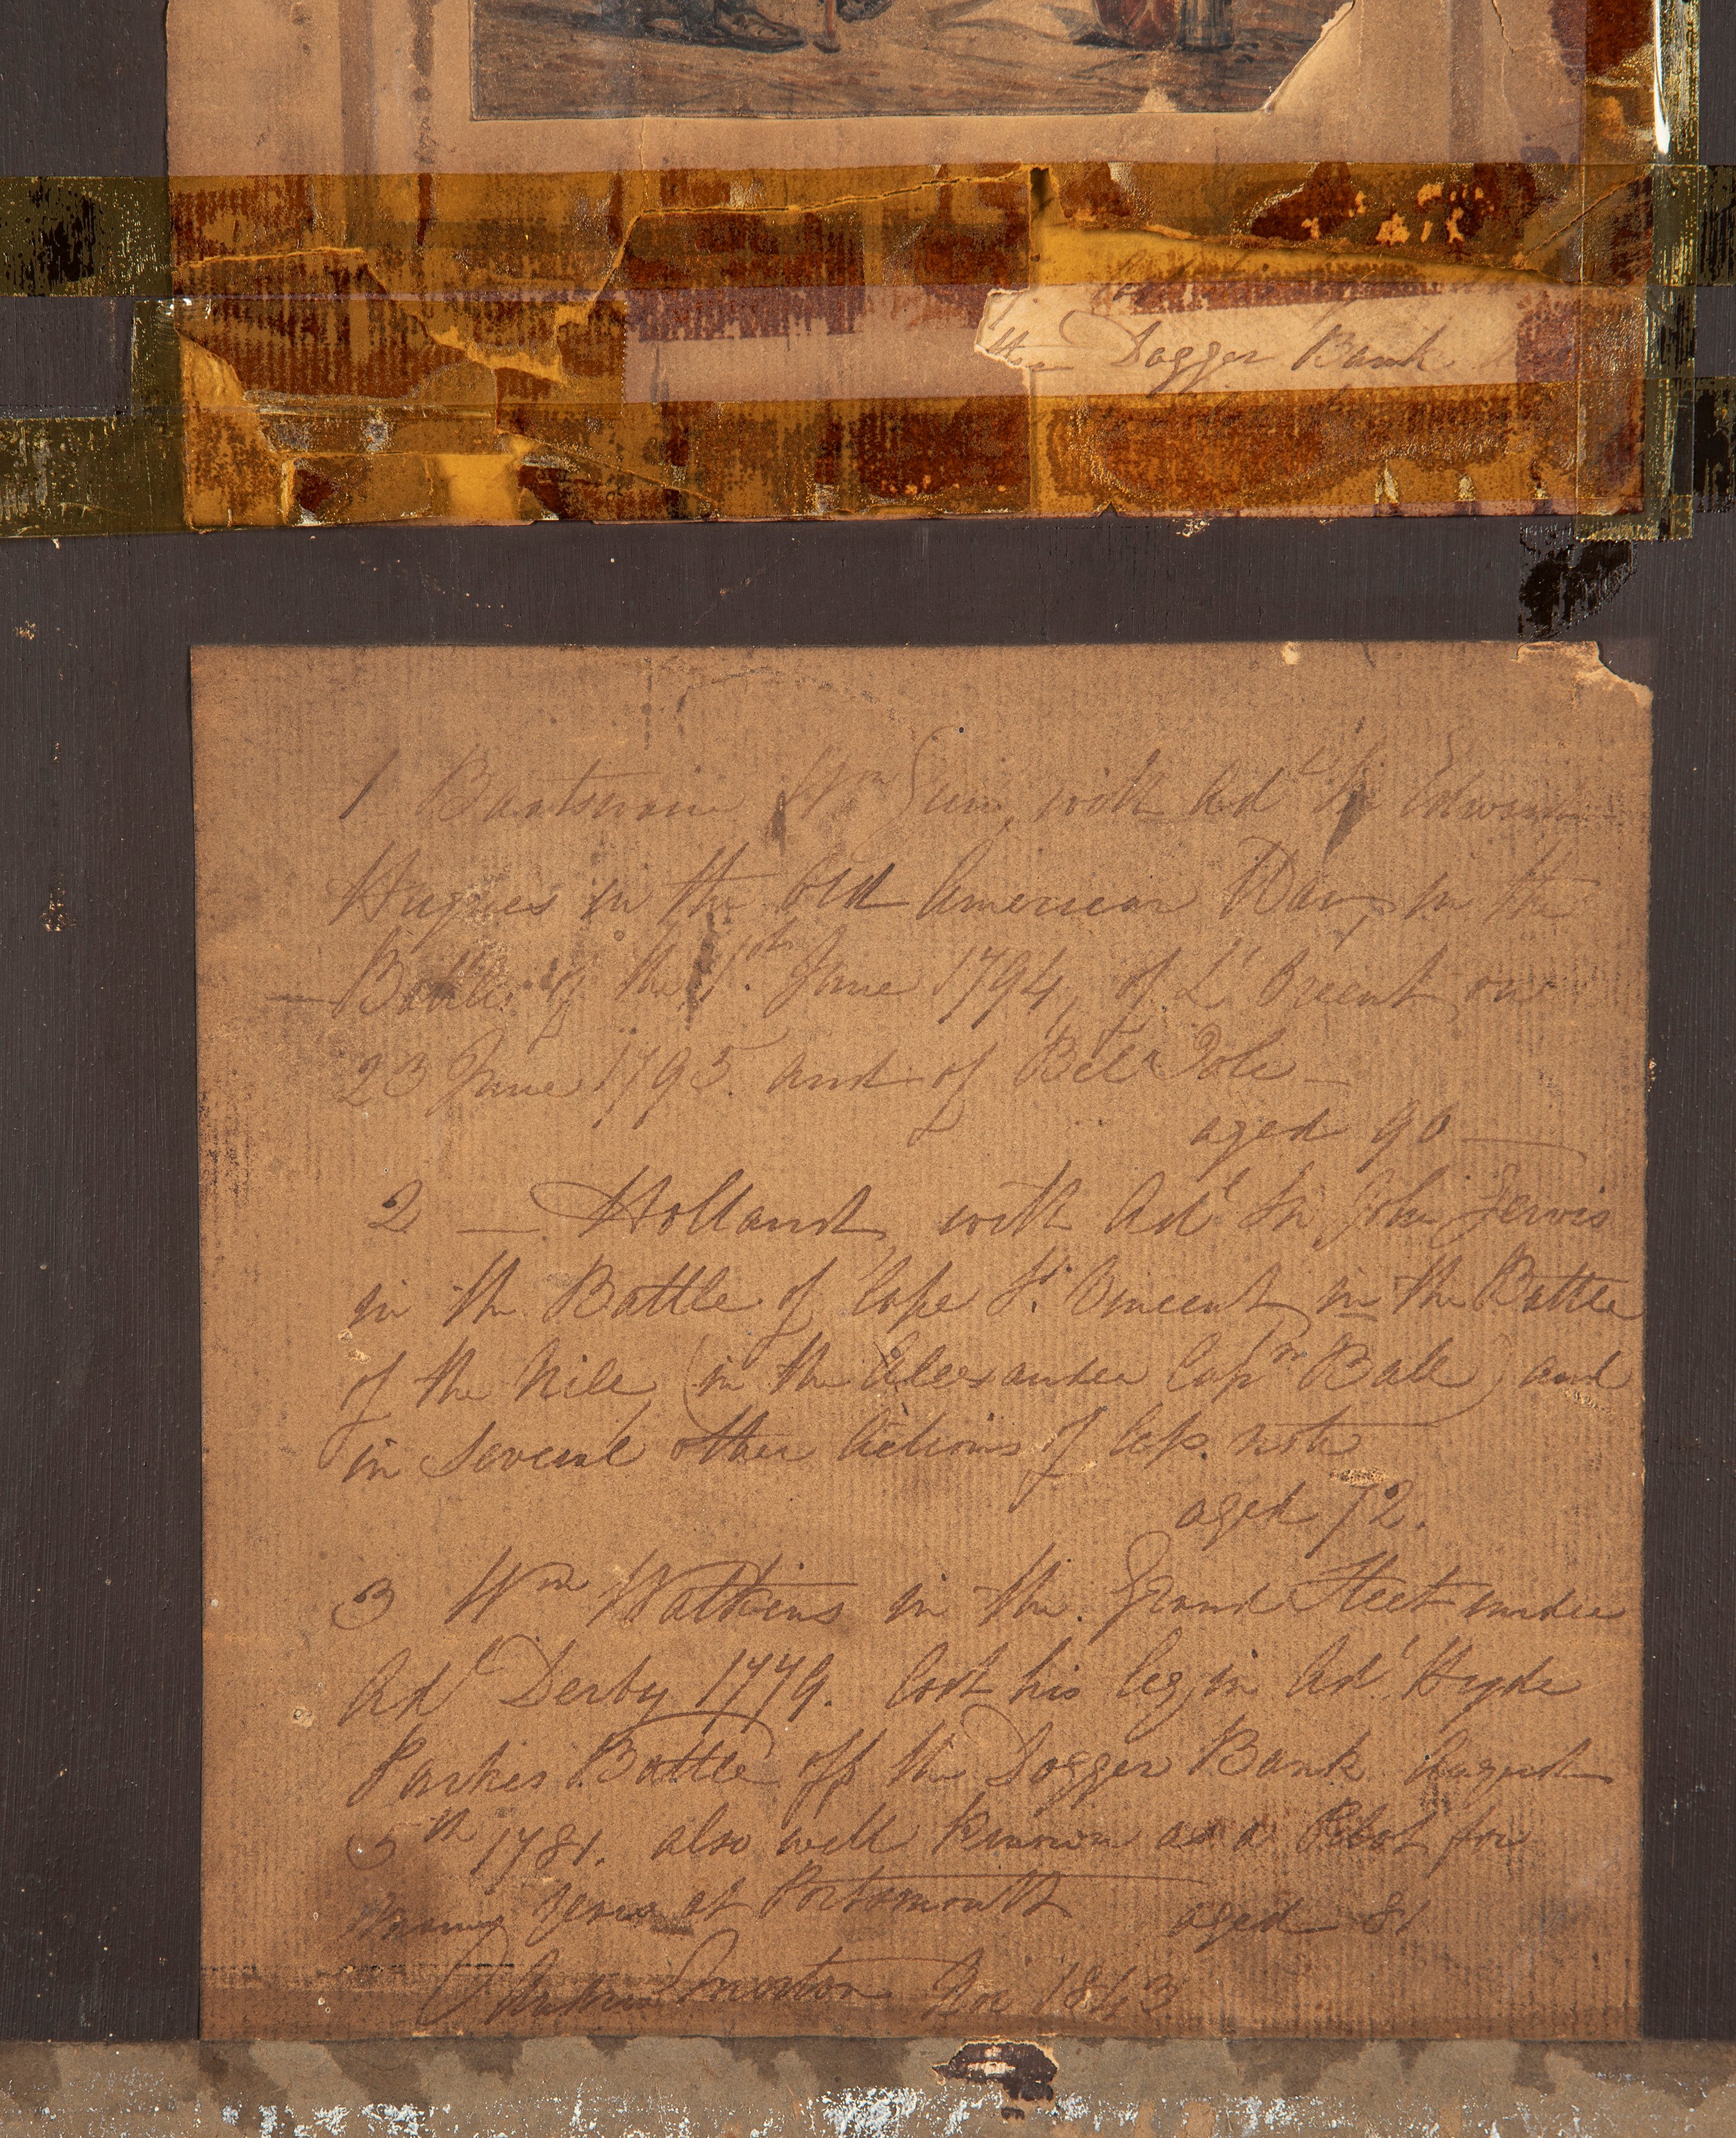 the Dogger Bank
1 Boatswain Wm Gun, with Adl Sir Edward
Hughes in the Old American War, in the
Battle of the 1st June 1794, of L'Orient on
23 June 1795. and of Bell Isle —
aged 90 —
2 — Holland with Adl Sir John Jervis
in the Battle of Cape St. Vincent in the Battle
of the Nile (in the Alexander Capn Ball) and
in several other Actions of less note
aged 72.
3 Wm Watkins in the Grand Fleet under
Adl Derby 1779. lost his leg in Adl Hyde
Parkes Battle off the Dogger Bank August
5th 1781. also well known as a Pilot for
many Years at Portsmouth aged 81
Morton 1843